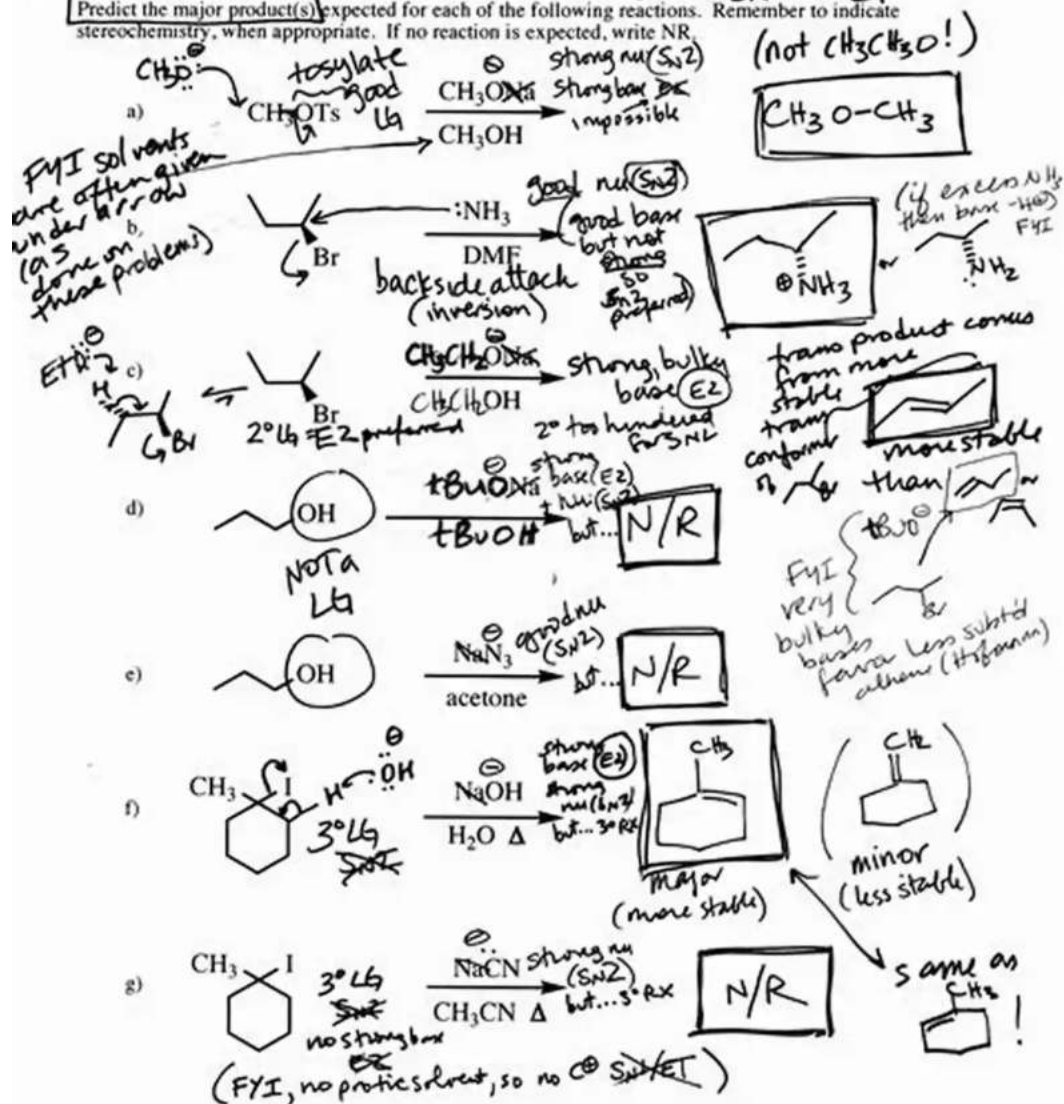 Predict the major product(s) expected for each of the following reactions. Remember to indicate
stereochemistry, when appropriate. If no reaction is expected, write NR.
(not CH3CH3O!)
a)
CH3O:⊖
tosylate
good
LG
CH3OTs
⊖
CH3ONa
CH3OH
strong nu (SN2)
strong base E2
impossible
CH3O-CH3
FYI solvents
are often given
under arrow
(as
done on
these problems)
b)
Br
:NH3
DMF
backside attack
(inversion)
good nu (SN2)
(good base
but not
strong
so
SN2
preferred)
⊕NH3
or
(if excess NH3
then base -H⊕)
FYI
NH2
c)
EtO:⊖
H
Br
Br
2° LG = E2 preferred
CH3CH2ONa
CH3CH2OH
strong, bulky
base E2
2° too hindered
for SN2
trans product comes
from more
stable
trans
conformer
of
Br
more stable
than
or
d)
OH
NOT a
LG
⊖
tBuONa
tBuOH
strong
base (E2)
+ nu (SN2)
but...
N/R
FYI
very
bulky
bases
favor less subst'd
alkene (Hofmann)
tBuO⊖
Br
e)
OH
⊖
NaN3
acetone
good nu
(SN2)
but...
N/R
f)
CH3
I
H
⊖
:OH
3° LG
SN2
⊖
NaOH
H2O Δ
strong
base (E2)
strong
nu (SN2)
but... 3° RX
CH3
major
(more stable)
CH2
minor
(less stable)
g)
CH3
I
3° LG
SN2
no strong base
E2
⊖
NaCN
CH3CN Δ
strong nu
(SN2)
but... 3° RX
N/R
same as
CH3
!
(FYI, no protic solvent, so no C⊕ SN1/E1)